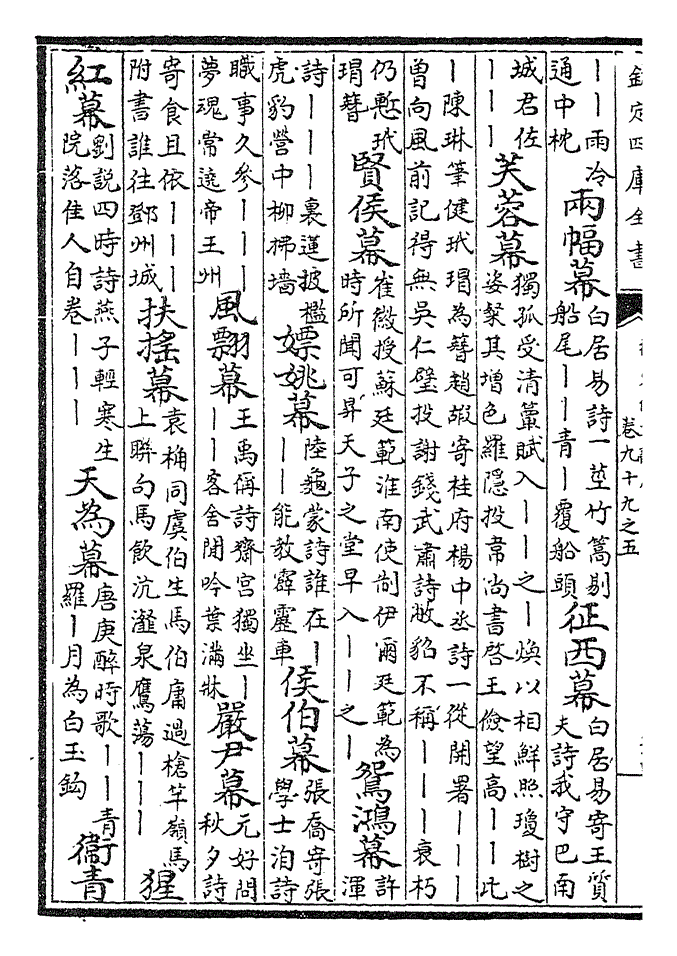 欽定四庫全書
卷九十九之五
——雨冷
通中枕
兩幅幕
白居易詩一莖竹篙剔
船尾——青—覆船頭
征西幕
白居易寄王質
夫詩我守巴南
城君佐
———
芙蓉幕
獨孤受清簟賦入——之—煥以相鮮照瓊樹之
姿粲其增色羅隱投韋尚書啓王儉望高——此
—陳琳筆健玳瑁為簪趙嘏寄桂府楊中丞詩一從開署———
曽向風前記得無吳仁璧投謝錢武肅詩敝貂不稱———衰朽
仍慙玳
瑁簪
賢侯幕
崔㣲授蘇廷範淮南使制伊爾廷範為
時所聞可昇天子之堂早入——之—
鴛鴻幕
許
渾
詩———裏蓮披檻
虎豹營中柳拂墻
嫖姚幕
陸龜蒙詩誰在—
——能教霹靂車
侯伯幕
張喬寄張
學士洎詩
職事久參———
夢魂常遶帝王州
風翻幕
王禹偁詩齋宫獨坐—
——客舍閒吟葉滿牀
嚴尹幕
元好問
秋夕詩
寄食且依———
附書誰往鄧州城
扶摇幕
袁桷同虞伯生馬伯庸過槍竿嶺馬
上聯句馬飲沆瀣泉鷹蕩———
猩
紅幕
劉説四時詩燕子輕寒生
院落佳人自卷———
天為幕
唐庚醉時歌——青
羅—月為白玉鈎
衞青